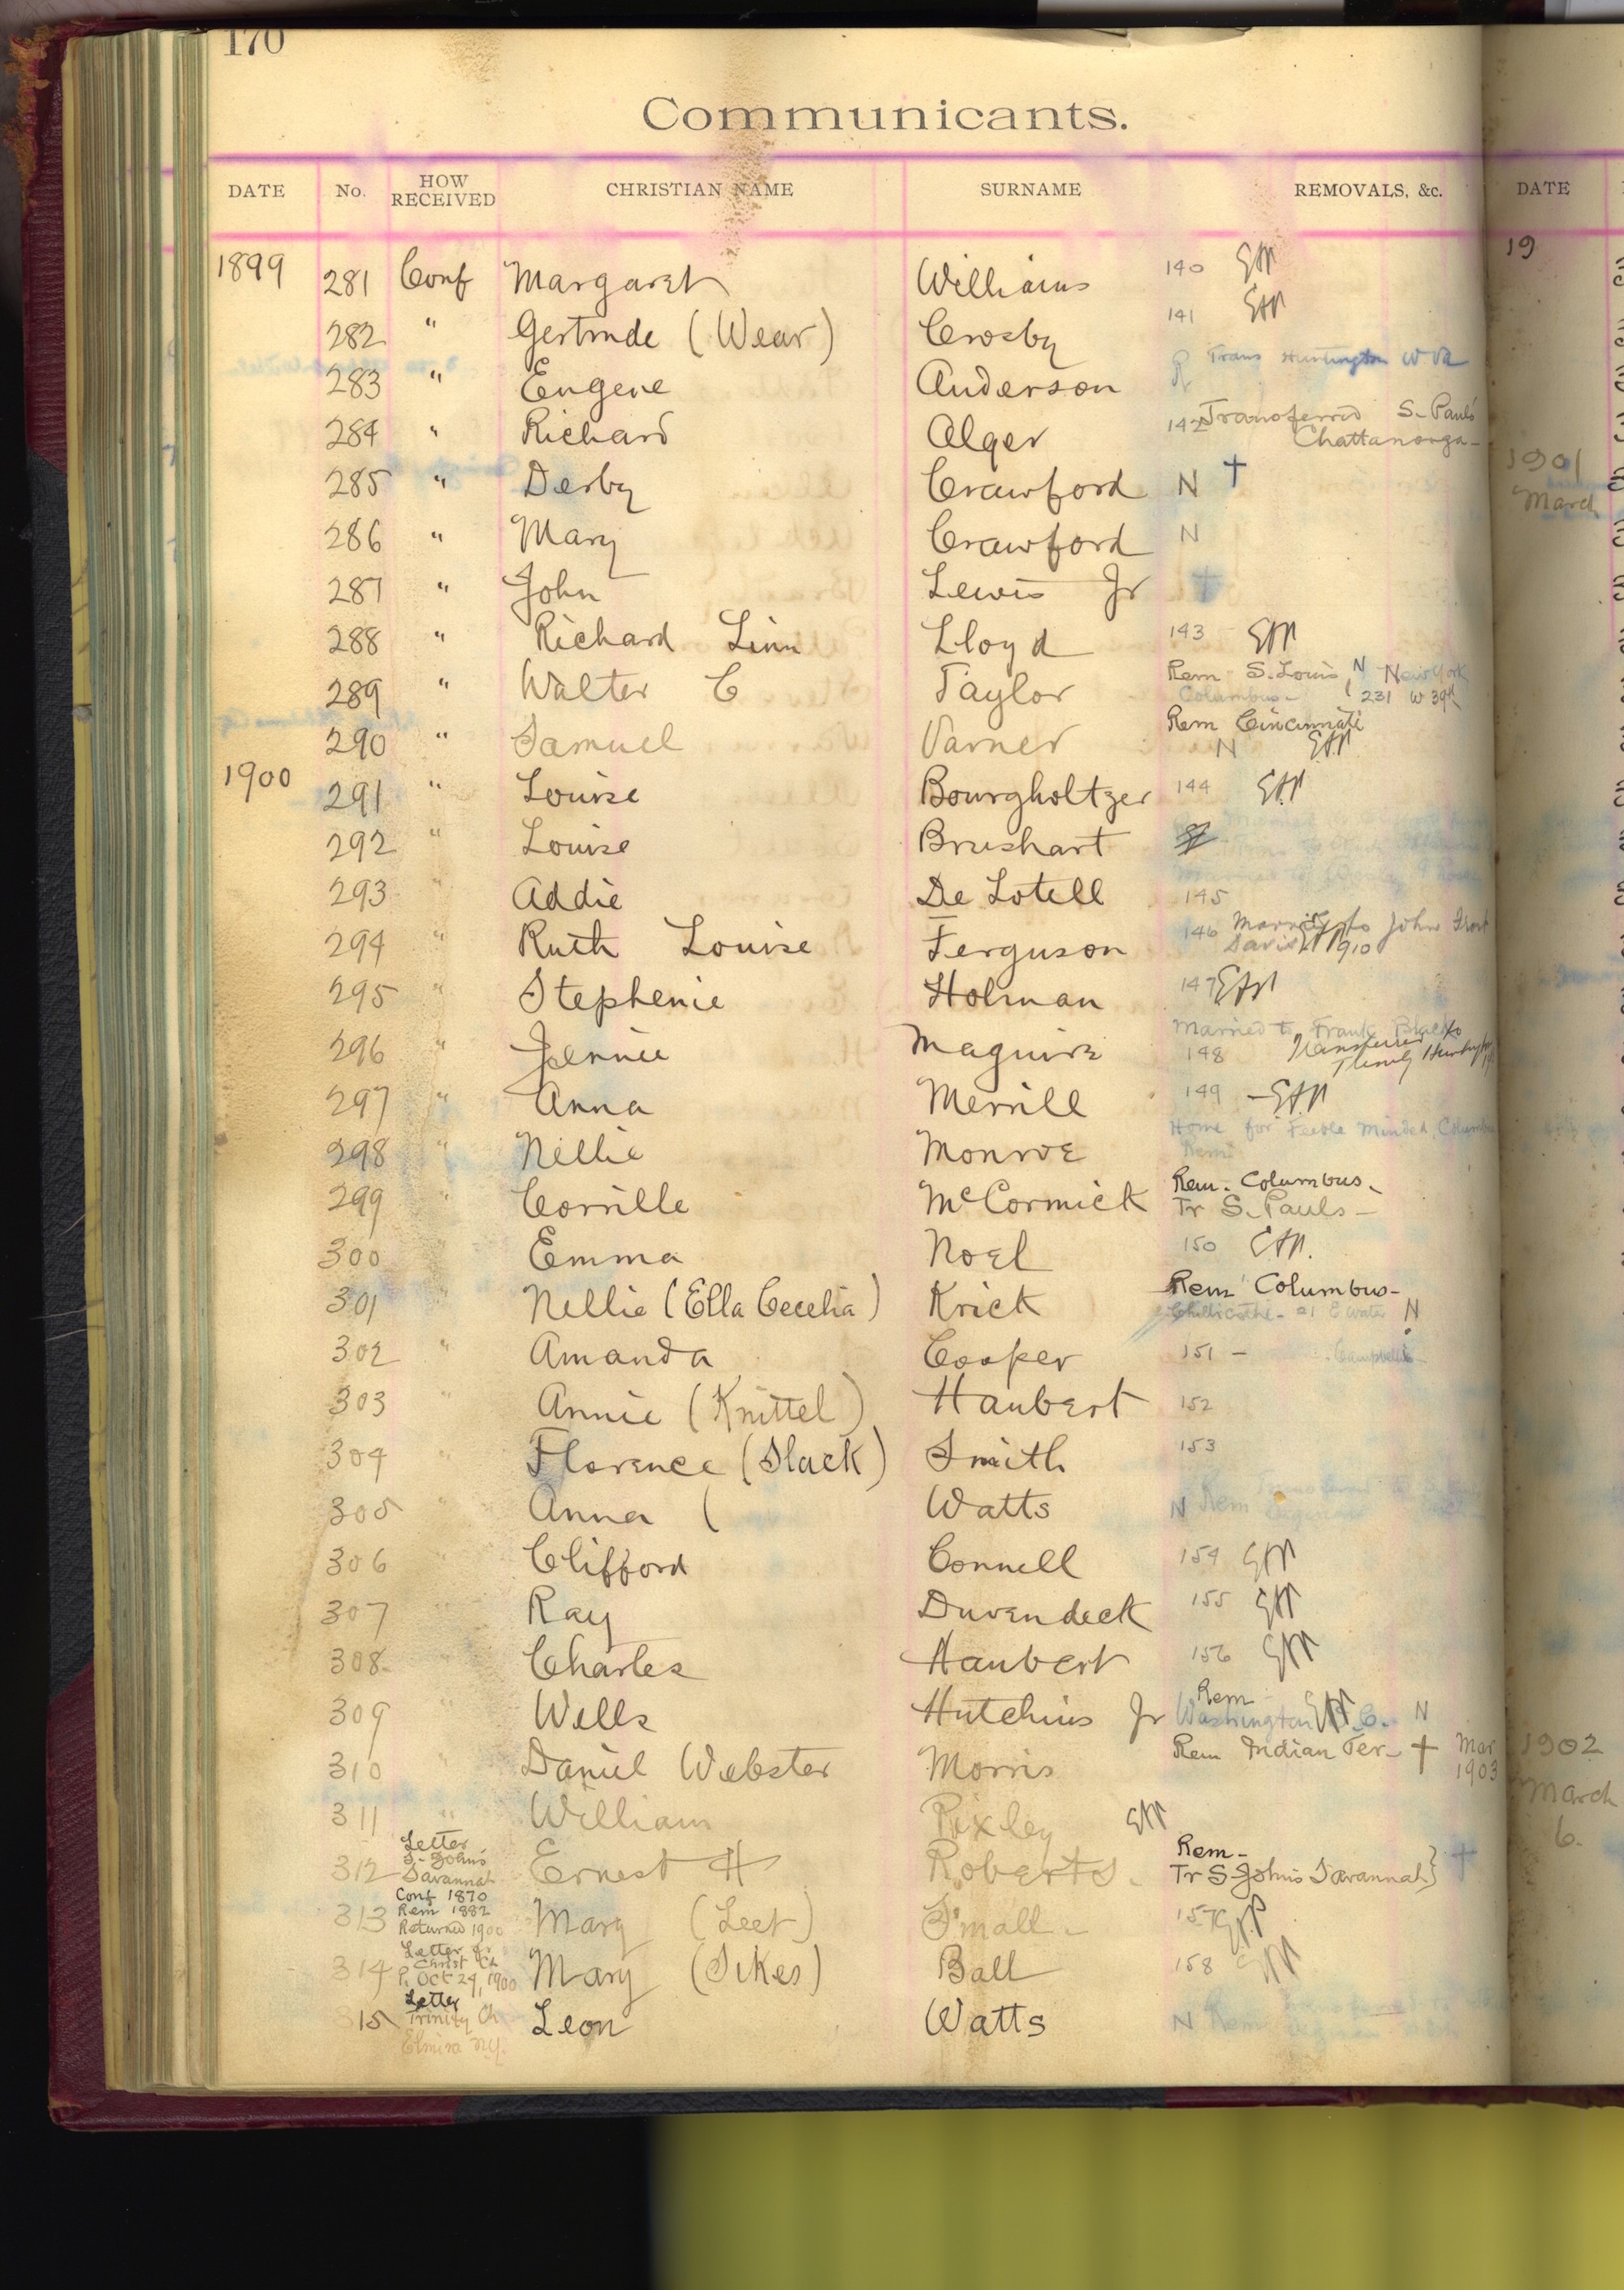 170
Communicants.
DATE No. HOW RECEIVED CHRISTIAN NAME SURNAME REMOVALS, &c. DATE
1899 281 Conf Margaret Williams 140 EAP 19
282 " Gertrude (Wear) Crosby 141 EAP
283 " Eugene Anderson R Trans Huntington W Va
284 " Richard Alger 142 Transferred S. Paul's Chattanooga-
285 " Derby Crawford N †
1901 March
286 " Mary Crawford N
287 " John Lewis Jr †
288 " Richard Linn Lloyd 143 EAP
289 " Walter C Taylor Rem S. Louis, N New York
Columbus- 231 W 39th
290 " Samuel Varner Rem Cincinnati
N EAP
1900 291 " Louise Bourgholtzer 144 EAP
292 " Louise Brushart
293 " Addie De Lotell 145
294 " Ruth Louise Ferguson 146 Married to John Grant
Davis 1910
295 " Stephenie Holman 147 EAP
296 " Jennie Maguire Married to Frank
148 Transferred to
297 " Anna Merrill 149 - EAP
298 " Nellie Monroe Home for Feeble Minded, Columbus
Rem
299 " Corrille McCormick Rem. Columbus.
Tr S. Pauls -
300 Emma Noel 150 EAP.
301 " Nellie (Ella Cecelia) Krick Rem Columbus-
Chillicothe- E Water N
302 " Amanda Cooper 151 - Campbell
303 " Annie (Knittel) Haubert 152
304 " Florence (Slack) Smith 153
305 " Anna ( Watts N Rem
306 Clifford Connell 154 EAP
307 Ray Duvendeck 155 EAP
308 Charles Haubert 156 EAP
309 " Wells Hutchins Jr Rem
Washington D.C. N
310 " Daniel Webster Morris Rem Indian Ter- † Mar 1903
1902 March 6.
311 " William Pixley EAP
312 Letter S. Johns Savannah Ernest H Roberts. Rem-
Tr S Johns Savannah} †
313 Conf 1870 Rem 1882 Returned 1900 Mary (Leet) Small - 157 EAP
314 Letter fr Christ Ch P. Oct 24, 1900 Mary (Sikes) Ball 158 EAP
315 Letter Trinity Ch Elmira N.Y. Leon Watts N Rem